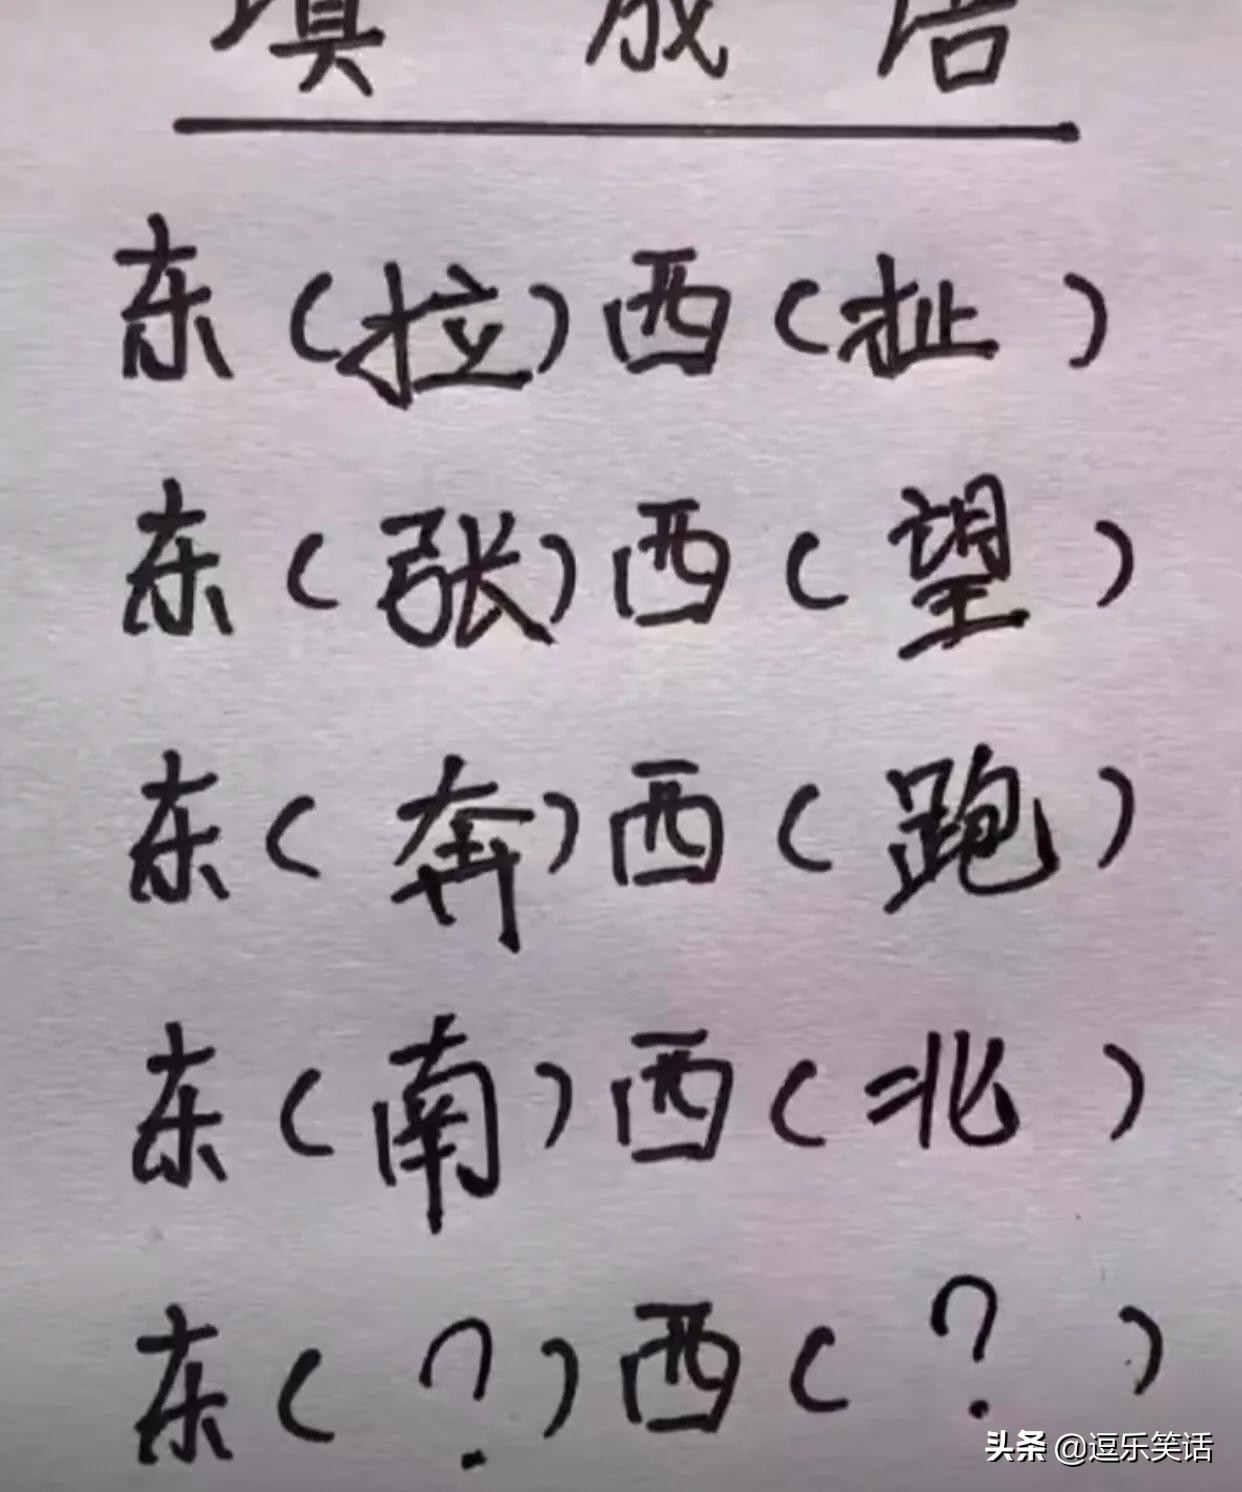 填 成 语
东（拉）西（扯）
东（张）西（望）
东（奔）西（跑）
东（南）西（北）
东（？）西（？）
头条 @逗乐笑话